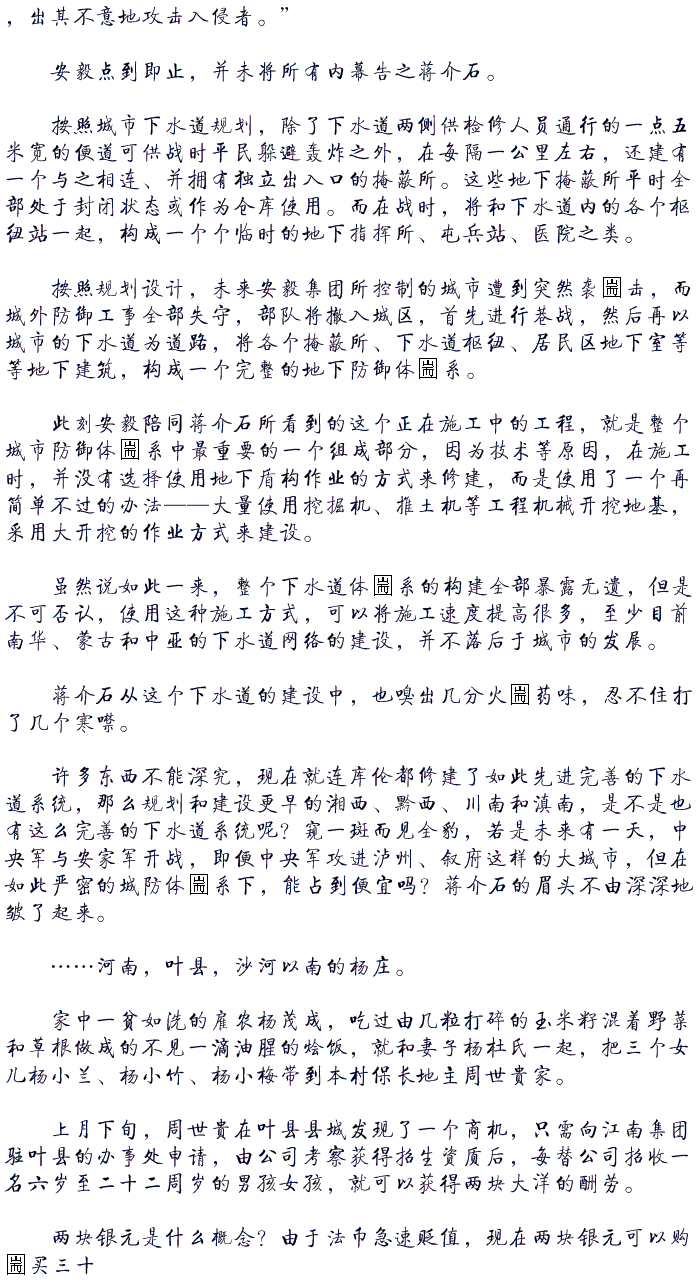 ，出其不意地攻击入侵者。”
安毅点到即止，并未将所有内幕告之蒋介石。
按照城市下水道规划，除了下水道两侧供检修人员通行的一点五
米宽的便道可供战时平民躲避轰炸之外，在每隔一公里左右，还建有
一个与之相连、并拥有独立出入口的掩蔽所。这些地下掩蔽所平时全
部处于封闭状态或作为仓库使用。而在战时，将和下水道内的各个枢
纽站一起，构成一个个临时的地下指挥所、屯兵站、医院之类。
按照规划设计，未来安毅集团所控制的城市遭到突然袭击，而
城外防御工事全部失守，部队将撤入城区，首先进行巷战，然后再以
城市的下水道为道路，将各个掩蔽所、下水道枢纽、居民区地下室等
等地下建筑，构成一个完整的地下防御体系。
此刻安毅陪同蒋介石所看到的这个正在施工中的工程，就是整个
城市防御体系中最重要的一个组成部分，因为技术等原因，在施工
时，并没有选择使用地下盾构作业的方式来修建，而是使用了一个再
简单不过的办法——大量使用挖掘机、推土机等工程机械开挖地基，
采用大开挖的作业方式来建设。
虽然说如此一来，整个下水道体系的构建全部暴露无遗，但是
不可否认，使用这种施工方式，可以将施工速度提高很多，至少目前
南华、蒙古和中亚的下水道网络的建设，并不落后于城市的发展。
蒋介石从这个下水道的建设中，也嗅出几分火药味，忍不住打
了几个寒噤。
许多东西不能深究，现在就连库伦都修建了如此先进完善的下水
道系统，那么规划和建设更早的湘西、黔西、川南和滇南，是不是也
有这么完善的下水道系统呢？窥一斑而见全豹，若是未来有一天，中
央军与安家军开战，即便中央军攻进泸州、叙府这样的大城市，但在
如此严密的城防体系下，能占到便宜吗？蒋介石的眉头不由深深地
皱了起来。
……河南，叶县，沙河以南的杨庄。
家中一贫如洗的雇农杨茂成，吃过由几粒打碎的玉米籽混着野菜
和草根做成的不见一滴油腥的烩饭，就和妻子杨杜氏一起，把三个女
儿杨小兰、杨小竹、杨小梅带到本村保长地主周世贵家。
上月下旬，周世贵在叶县县城发现了一个商机，只需向江南集团
驻叶县的办事处申请，由公司考察获得招生资质后，每替公司招收一
名六岁至二十二周岁的男孩女孩，就可以获得两块大洋的酬劳。
两块银元是什么概念？由于法币急速贬值，现在两块银元可以购
买三十